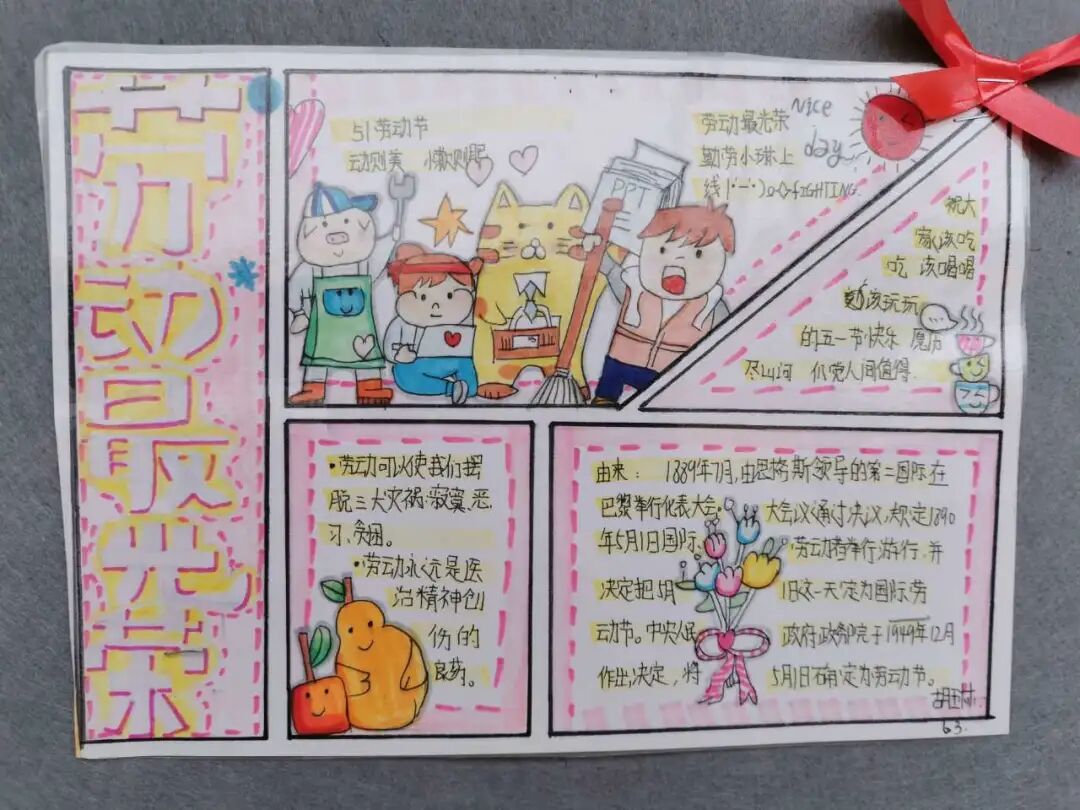 劳动最光荣
51劳动节
动则美 懒则
劳动最光荣
勤劳小 上
线 FIGHTING
Nice
day
PPT
祝大
家该吃
吃 该喝喝
该玩玩
的五一节快乐 愿历
尽山河 仍觉人间值得.
•劳动可以使我们摆
脱三大灾祸:寂寞、恶
习、贫困。
•劳动永远是医
治精神创
伤的
良药。
由来: 1889年7月,由恩格斯领导的第二国际在
巴黎举行代表大会。 大会议通过决议,规定1890
年5月1日国际 劳动者举行游行,并
决定把5月 1日这一天定为国际劳
动节。中央人民 政府政务院于1949年12月
作出决定,将 5月1日确定为劳动节。
63.